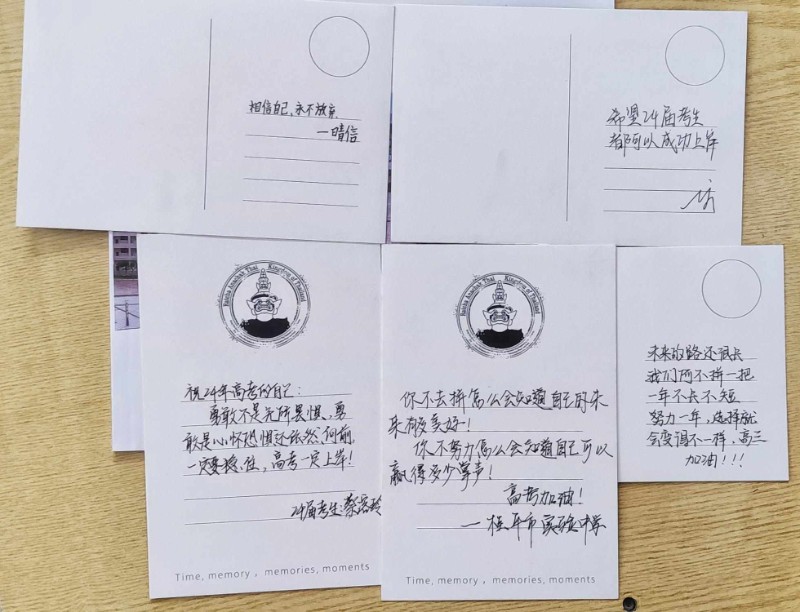 相信自己,永不放弃
—晴信
希望24届考生
都可以成功上岸
Kingdom of Thailand
祝24年高考的自己:
勇敢不是无所畏惧,勇
敢是心怀恐惧还依然向前,
一定要稳住,高考一定上岸!
24届考生:蔡
Time, memory , memories, moments
Kingdom of Thailand
你不去拼怎么会知道自己的未
来有多美好!
你不努力怎么会知道自己可以
赢得多少掌声!
高考加油!
—桂平市实验中学
Time, memory , memories, moments
未来的路还很长
我们何不拼一把
一年不长不短
努力一年,选择就
会变得不一样,高三
加油!!!